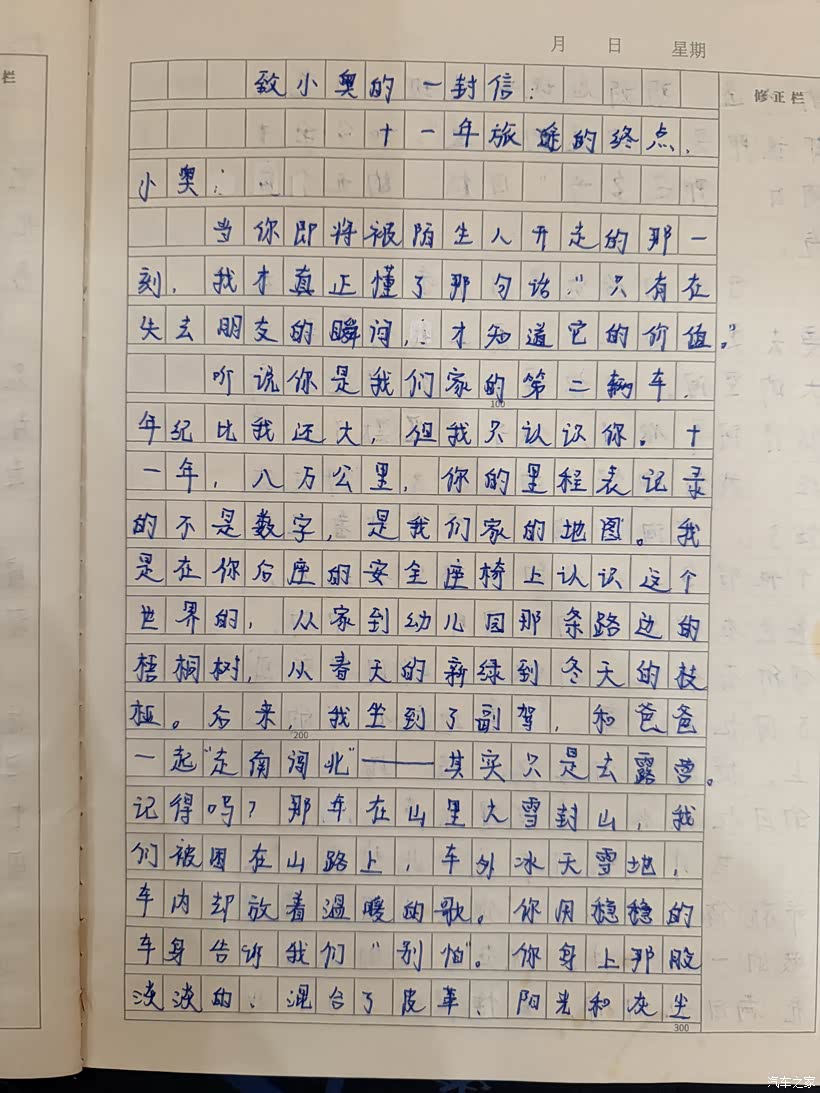 月 日 星期
栏
修正栏
致小奥的一封信:
十一年旅途的终点.
小奥:
当你即将被陌生人开走的那一
刻,我才真正懂了那句话"只有在
失去朋友的瞬间,才知道它的价值。"
听说你是我们家的第二辆车.
年纪比我还大,但我只认识你。十
100
一年,八万公里,你的里程表记录
的不是数字,是我们家的地图。我
是在你后座的安全座椅上认识这个
世界的,从家到幼儿园那条路边的
梧桐树,从春天的新绿到冬天的枝
桠。后来,我坐到了副驾,和爸爸
200
一起"走南闯北"——其实只是去露营。
记得吗?那年在山里大雪封山,我
们被困在山路上,车外冰天雪地,
车内却放着温暖的歌。你用稳稳的
车身告诉我们"别怕"。你身上那股
淡淡的、混合了皮革、阳光和灰尘
300
汽车之家